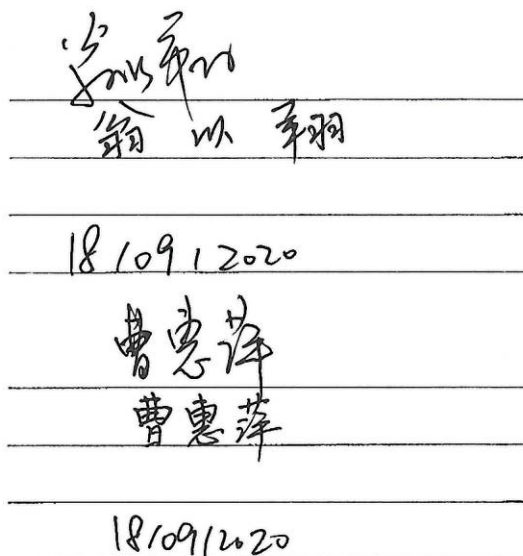 翁以翔
翁 以 翔
18/09/2020
曹惠萍
曹惠萍
18/09/2020